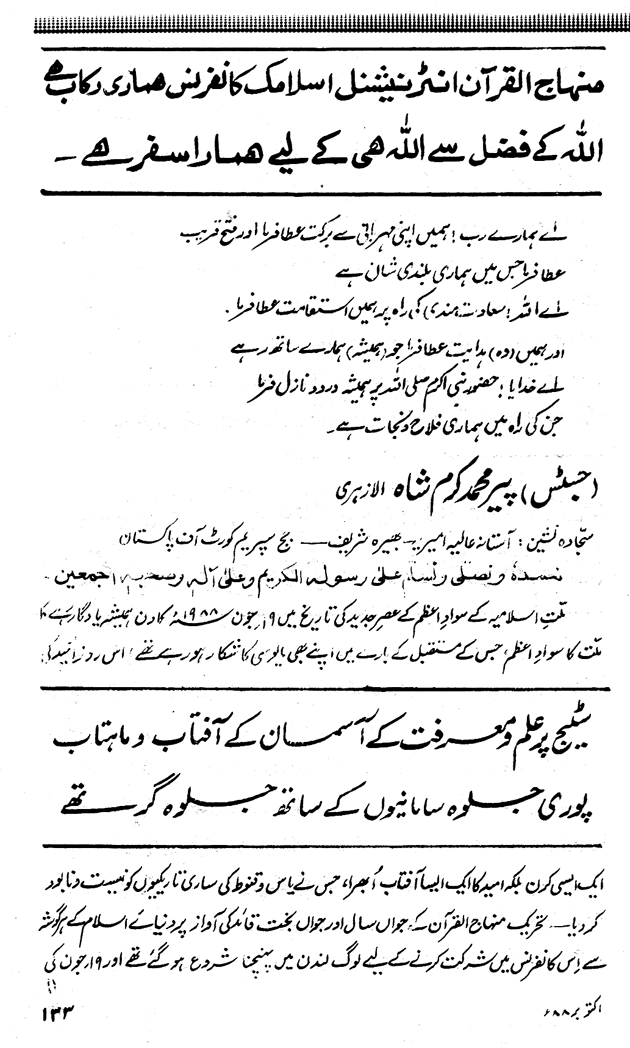 منہاج القرآن انٹرنیشنل اسلامک کانفرنس ھماری رکاب ھے
اللہ کے فضل سے اللہ ھی کے لیے ھمارا سفر ھے ۔
اے ہمارے رب ! ہمیں اپنی مہربانی سے برکت عطا فرما اور فتح قریب
عطا فرما جس میں ہماری بلندی شان ہے
اے اللہ ! سعادت مندی کی راہ پر ہمیں استقامت عطا فرما ۔
اور ہمیں (وہ) ہدایت عطا فرما جو (ہمیشہ) ہمارے ساتھ رہے
اے خدایا ! حضور نبی اکرم صلی اللہ پر ہمیشہ درود نازل فرما
جن کی راہ میں ہماری فلاح و نجات ہے ۔
(جسٹس) پیر محمد کرم شاہ الازہری
سجادہ نشین : آستانہ عالیہ امیریہ بھیرہ شریف — جج سپریم کورٹ آف پاکستان
نحمدہ ونصلی ونسلم علیٰ رسولہ الکریم وعلیٰ آلہ وصحبہ اجمعین ۔
ملت اسلامیہ کے سوادِ اعظم کے عصرِ جدید کی تاریخ میں ۱۹ جون ۱۹۸۸ء کا دن ہمیشہ یادگار رہے گا
ملت کا سوادِ اعظم، جس کے مستقبل کے بارے میں اپنے بھی مایوسی کا شکار ہو رہے تھے، اس روز امید کی
سٹیج پر علم و معرفت کے آسمان کے آفتاب و ماہتاب
پوری جلوہ سامانیوں کے ساتھ جلوہ گر تھے
ایک ایسی کرن بلکہ امید کا ایک ایسا آفتاب اُبھرا، جس نے یاس و قنوط کی ساری تاریکیوں کو نیست و نابود
کر دیا — تحریک منہاج القرآن کے جواں سال اور جواں بخت قائد کی آواز پر دنیائے اسلام کے ہر گوشہ
سے اِس کانفرنس میں شرکت کرنے کے لیے لوگ لندن میں پہنچنا شروع ہو گئے تھے اور ۱۹ جون کی
اکتوبر ۸۸ء
۱۳۳